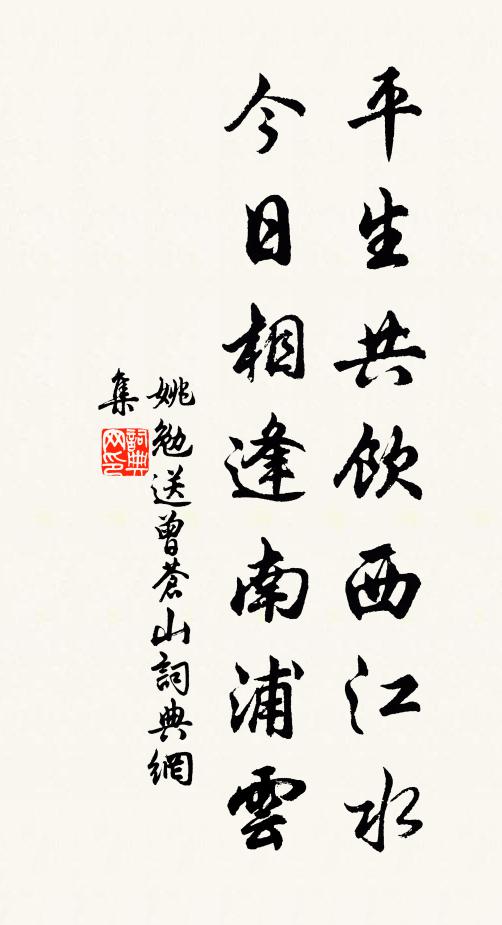 平生共飲西江水
今日相逢南浦雲
姚勉送曾蒼山詞典網
集
詞典
网印